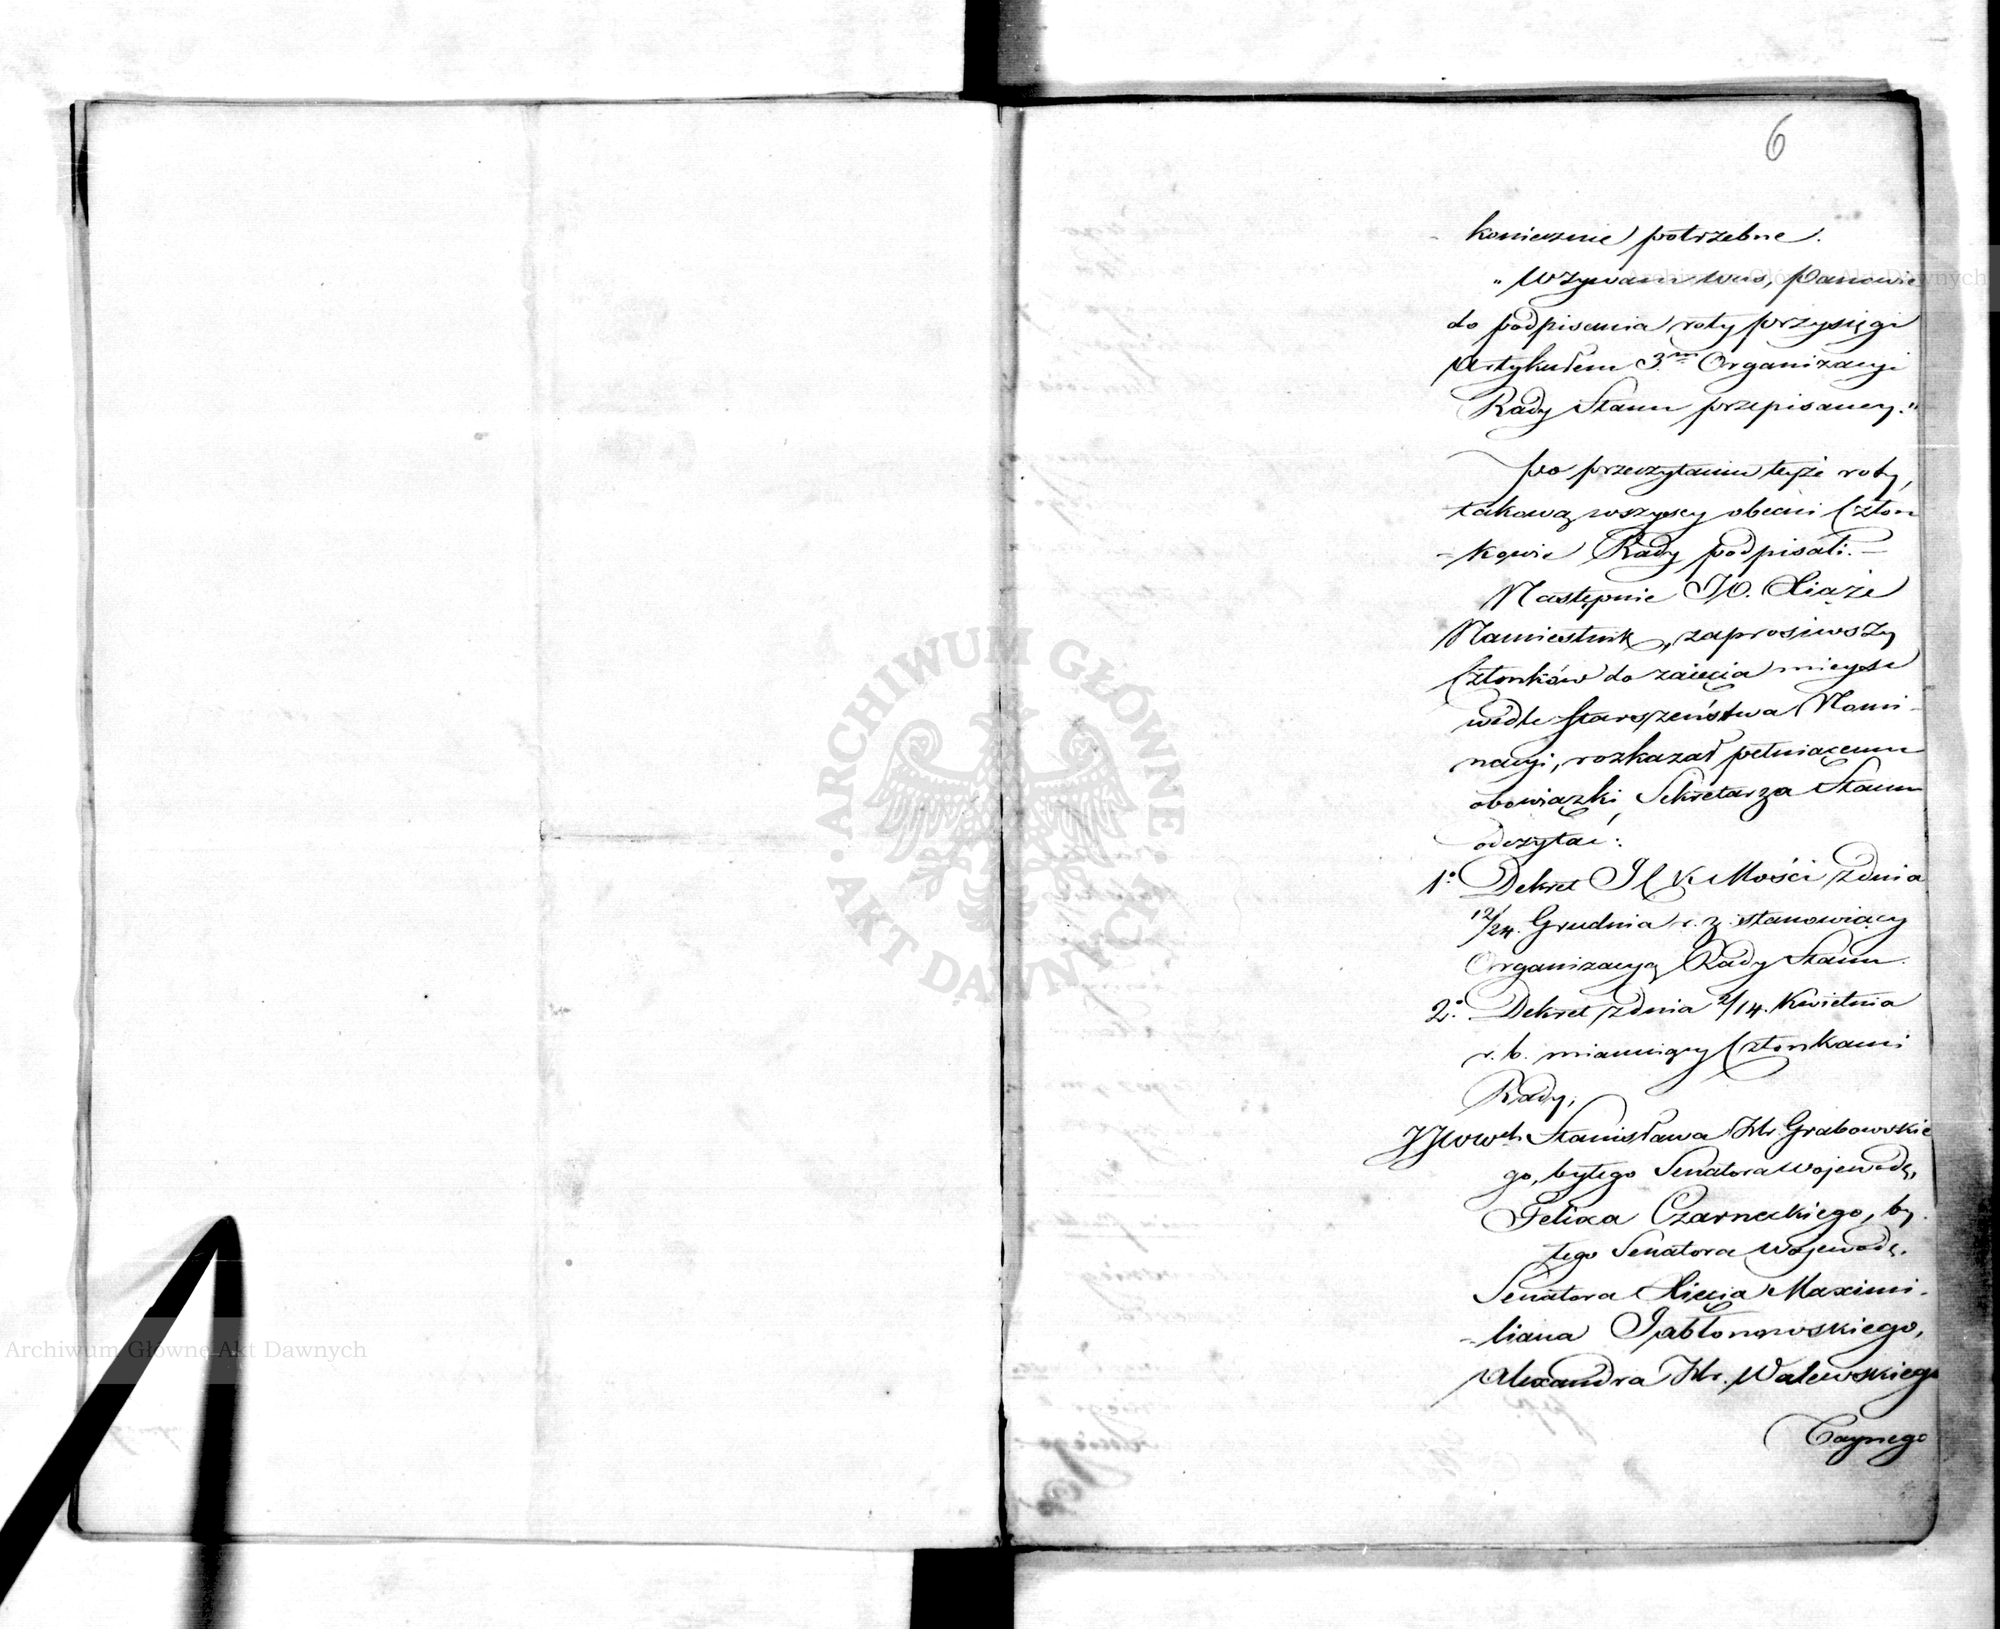 6
koniecznie potrzebne.
„Wzywam was, Panowie
do podpisania roty przysięgi
Artykułem 3.m Organizacyi
Rady Stanu przepisaney."
po przeczytaniu teyże roty,
takową wszyscy obecni Człon
-kowie Rady podpisali.—
Następnie JO. Xiąże
Namiestnik, zaprosiwszy
Członków do zaięcia mieysc
wedle starszeństwa Nomi-
nacyi, rozkazał pełniącemu
obowiązki Sekretarza Stanu
odczytać:
1° Dekret J C K Mości z dnia
12/24. Grudnia r. z. stanowiący
Organizacyą Rady Stanu.
2° Dekret z dnia 2/14. Kwietnia
r. b. mianuiący Członkami
Rady;
JJWWch Stanisława Hr Grabowskie
go, byłego Senatora Wojewodę,
Felixa Czarneckiego, by-
łego Senatora Wojewodę.
Senatora Xięcia Maximi-
-liana Jabłonowskiego,
Alexandra Hr. Walewskiego
Taynego
ARCHIWUM GŁÓWNE AKT DAWNYCH
Archiwum Główne Akt Dawnych
Archiwum Główne Akt Dawnych